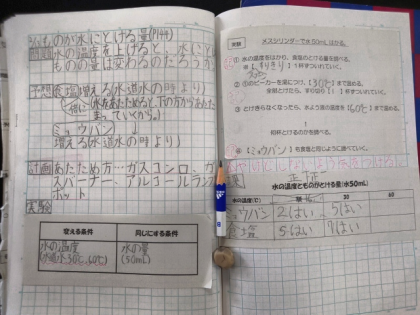 ものが水にとける量(P144)
問題 水の温度を上げると、水にと
ものの量は変わるのだろうか
予想
増える(水道水の時より)
(水をあたためると、下の方からあたた
まっていくから。)
ミョウバン
増える(水道水の時より)
計画 あたため方…ガスコンロ、ガ
スバーナー、アルコールラン
ポット
実験
変える条件
同じにする条件
水の温度
(水道水、30℃、60℃)
水の量
(50mL)
実験
メスシリンダーで水50mLはかる。
① 水の温度をはかり、食塩のとける量を調べる。
[すりきり]1杯ずつとかしていく。
② ①のビーカーを湯につけ、[30℃]まで温める。
全部とけたら、すりきり[1]杯ずつとかしていく。
③ とけきらなくなったら、水よう液の温度を[60℃]まで温め、
何杯とけるのかを調べる。
④ [ミョウバン]も食塩と同じように調べていく。
水の温度とものがとける量(水50mL)
水の温度(℃)
30
60
ミョウバン
2はい
5はい
食塩
5はい
7はい